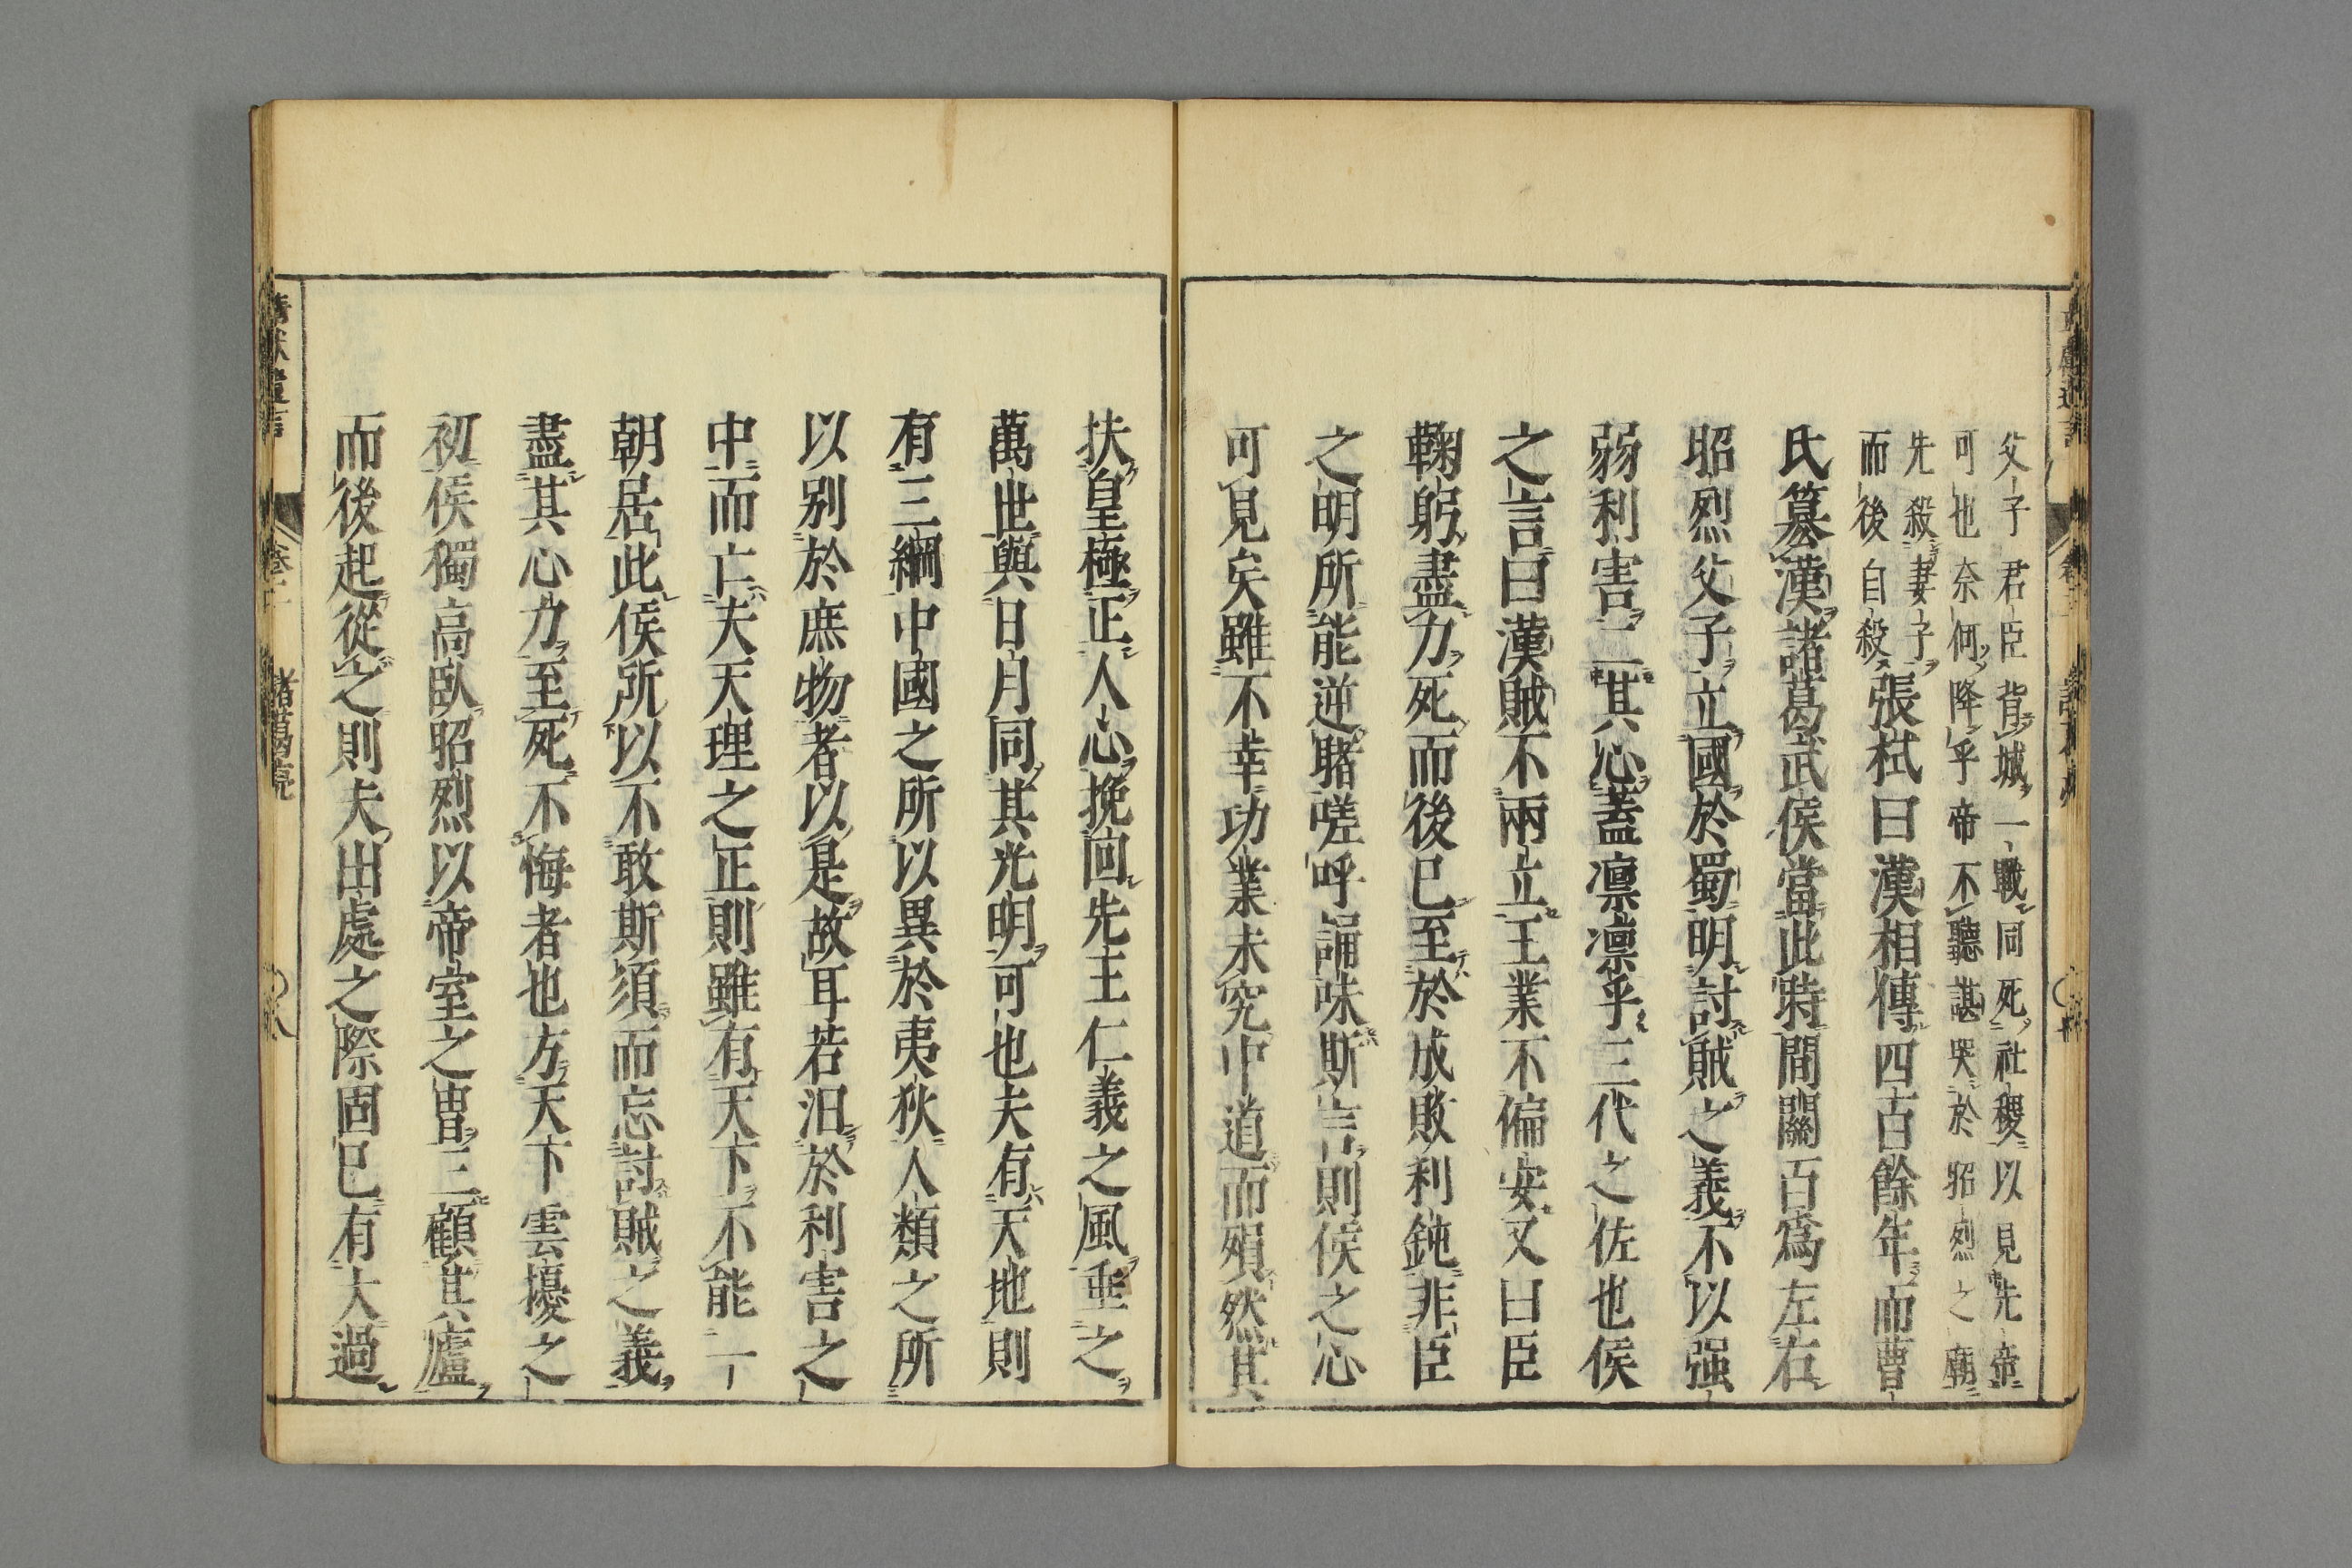 父子君臣背城一戰同死社稷以見先帝
可也奈何降乎帝不聽諶哭於昭烈之廟
先殺妻子
而後自殺
張栻曰漢相傳四百餘年而曹
氏簒漢諸葛武侯當此時間關百爲左右
昭烈父子立國於蜀明討賊之義不以强
弱利害二其心蓋凛凛乎三代之佐也侯
之言曰漢賊不兩立王業不偏安又曰臣
鞠躬盡力死而後已至於成敗利鈍非臣
之明所能逆睹嗟呼誦味斯言則侯之心
可見矣雖不幸功業未究中道而殞然其
扶皇極正人心挽回先王仁義之風垂之
萬世與日月同其光明可也夫有天地則
有三綱中國之所以異於夷狄人類之所
以别於庶物者以是故耳若汨於利害之
中而亡夫天理之正則雖有天下不能一
朝居此侯所以不敢斯須而忘討賊之義
盡其心力至死不悔者也方天下雲擾之
初侯獨高臥昭烈以帝室之冑三顧其廬
而後起從之則夫出處之際固已有大過
諸葛亮